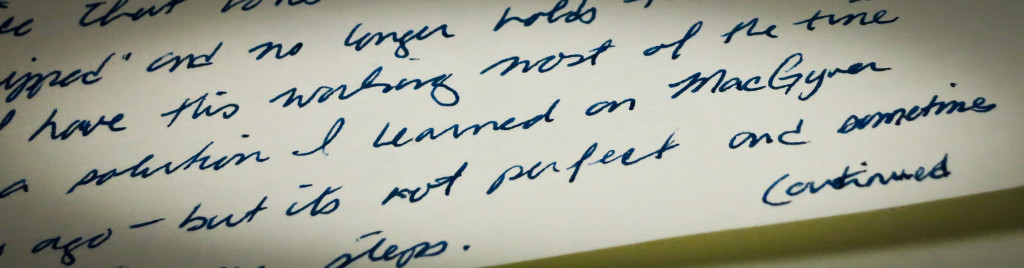 that
and no longer holds
have this working most of the time
a solution I learned on MacGyver
ago - but its not perfect and sometimes
steps.
(continued